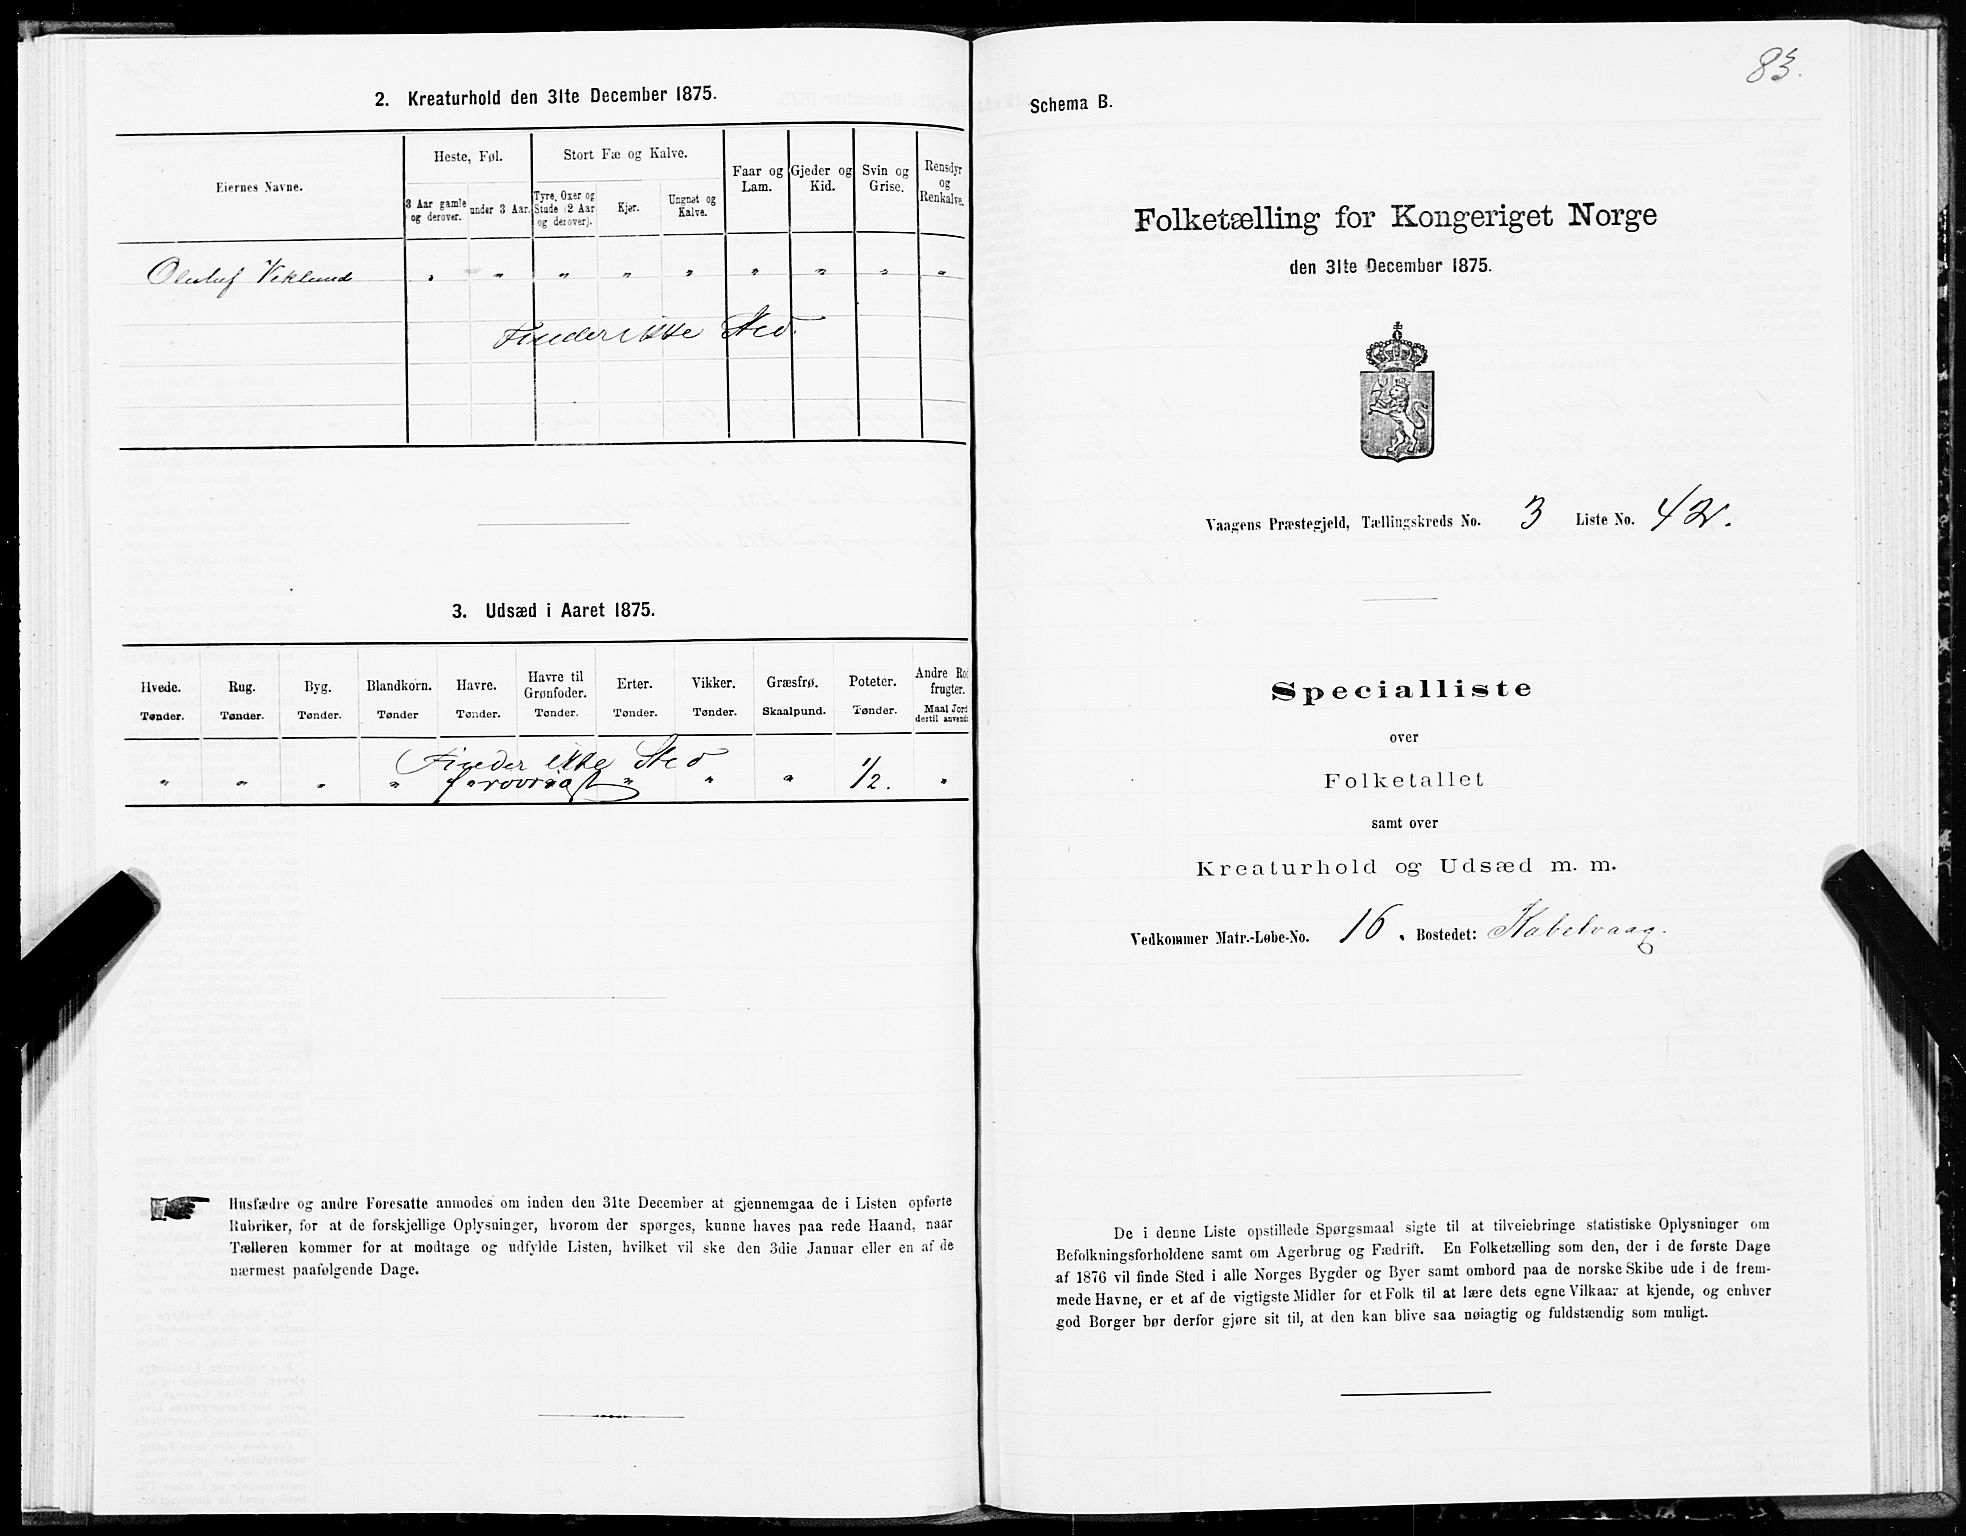 2. Kreaturhold den 31te December 1875.
Eiernes Navne.
Heste, Føl.
Stort Fæ og Kalve.
Faar og Lam.
Gjeder og Kid.
Svin og Grise.
Rensdyr og Renkalve.
3 Aar gamle og derover.
under 3 Aar.
Tyre, Oxer og Stude (2 Aar og derover).
Kjør.
Ungnøt og Kalve.
Viklund " " " " " " " " "
Finder ikke Sted.
3. Udsæd i Aaret 1875.
Hvede. Rug. Byg. Blandkorn. Havre. Havre til Grønfoder. Erter. Vikker. Græsfrø. Poteter. Andre Rodfrugter.
Tønder. Tønder. Tønder. Tønder Tønder. Tønder. Tønder. Tønder. Skaalpund. Tønder. Maal Jord dertil anvendt
Finder ikke Sted
" " " " forøvrigt " " " 1/2. "
Husfædre og andre Foresatte anmodes om inden den 31te December at gjennemgaa de i Listen opførte
Rubriker, for at de forskjellige Oplysninger, hvorom der spørges, kunne haves paa rede Haand, naar
Tælleren kommer for at modtage og udfylde Listen, hvilket vil ske den 3die Januar eller en af de
nærmest paafølgende Dage.
83.
Schema B.
Folketælling for Kongeriget Norge
den 31te December 1875.
Vaagens Præstegjeld, Tællingskreds No. 3 Liste No. 42.
Specialliste
over
Folketallet
samt over
Kreaturhold og Udsæd m. m.
Vedkommer Matr.-Løbe-No. 16. Bostedet: Kabelvaag.
De i denne Liste opstillede Spørgsmaal sigte til at tilveiebringe statistiske Oplysninger om
Befolkningsforholdene samt om Agerbrug og Fædrift. En Folketælling som den, der i de første Dage
af 1876 vil finde Sted i alle Norges Bygder og Byer samt ombord paa de norske Skibe ude i de frem-
mede Havne, er et af de vigtigste Midler for et Folk til at lære dets egne Vilkaar at kjende, og enhver
god Borger bør derfor gjøre sit til, at den kan blive saa nøiagtig og fuldstændig som muligt.